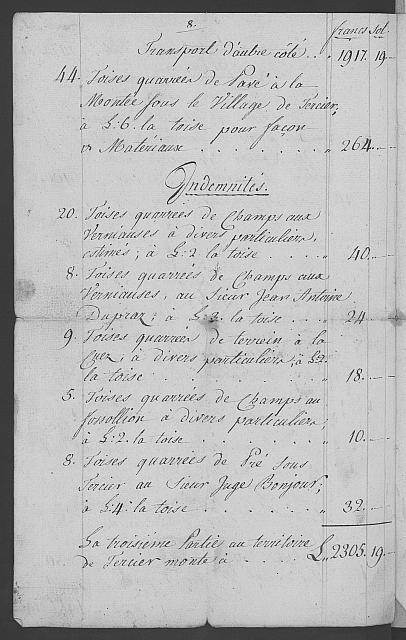 8.
francs Sol
Transport d'autre côté . . 1917. 19
44. Toises quarrées de Pavé à la
Montée sous le Village de Tercier,
à L: 6. la toise pour façon
& Matériaux . . . . . . . . " 264.
Indemnités.
20. Toises quarrées de Champs aux
Verniauses à divers particuliers,
estimés; à L: 2 la toise . . . . " 40.
8. Toises quarrées de Champs aux
Verniauses, au Sieur Jean Antoine
Dupraz; à L: 3. la toise . . . " 24.
9. Toises quarrées de terrein à la
à divers particuliers; à L: 2.
la toise . . . . . . . . . " 18.
5. Toises quarrées de Champs au
fossillion à divers particuliers,
à L: 2. la toise . . . . . . . " 10.
8. Toises quarrées de Pré sous
Tercier au Sieur Juge Bonjour;
à L: 4. la toise . . . . . . . " 32.
La troisième Partie au territoire
de Tercier monte à . . . . L" 2305. 19.